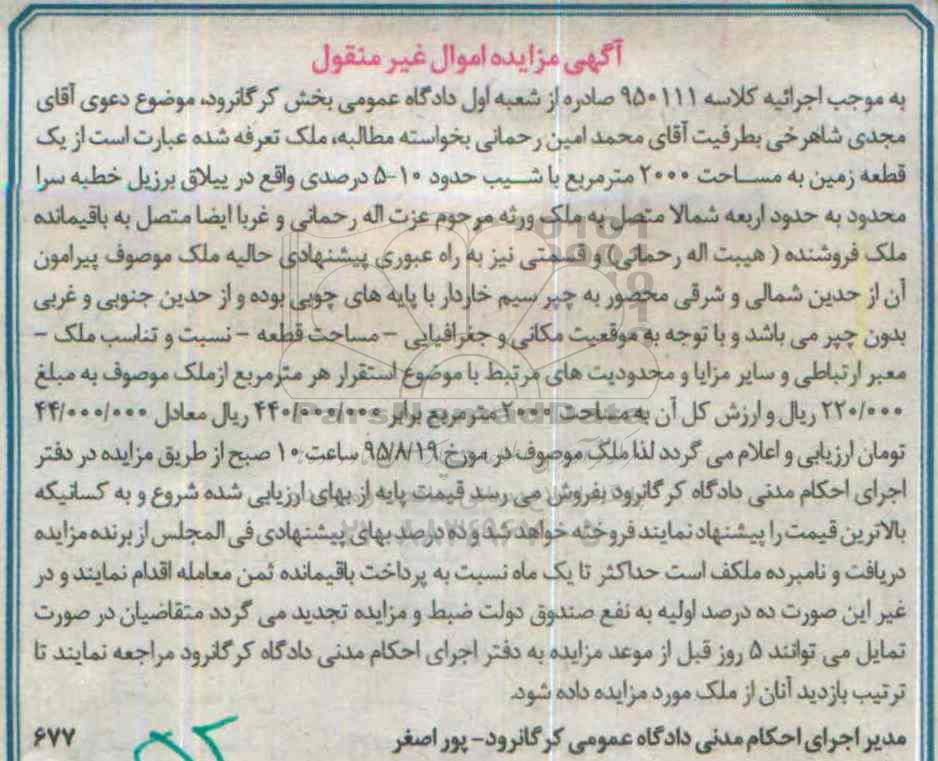 آگهی مزایده اموال غیر منقول
به موجب اجرائیه کلاسه ۹۵۰۱۱۱ صادره از شعبه اول دادگاه عمومی بخش کرگانرود، موضوع دعوی آقای
مجدی شاهرخی بطرفیت آقای محمد امین رحمانی بخواسته مطالبه، ملک تعرفه شده عبارت است از یک
قطعه زمین به مساحت ۲۰۰۰ مترمربع با شیب حدود ۱۰-۵ درصدی واقع در ییلاق برزبل خطبه سرا
محدود به حدود اربعه شمالا متصل به ملک ورثه مرحوم عزت اله رحمانی و غربا ایضا متصل به باقیمانده
ملک فروشنده ( هیبت اله رحمانی) و قسمتی نیز به راه عبوری پیشنهادی حالیه ملک موصوف پیرامون
آن از حدین شمالی و شرقی محصور به چپر سیم خاردار با پایه های چوبی بوده و از حدین جنوبی و غربی
بدون چپر می باشد و با توجه به موقعیت مکانی و جغرافیایی - مساحت قطعه - نسبت و تناسب ملک -
معبر ارتباطی و سایر مزایا و محدودیت های مرتبط با موضوع استقرار هر مترمربع ازملک موصوف به مبلغ
۲۲۰/۰۰۰ ریال و ارزش کل آن به مساحت ۲۰۰۰ مترمربع برابر ۴۴۰/۰۰۰/۰۰۰ ریال معادل ۴۴/۰۰۰/۰۰۰
تومان ارزیابی و اعلام می گردد لذا ملک موصوف در مورخ ۹۵/۸/۱۹ ساعت ۱۰ صبح از طریق مزایده در دفتر
اجرای احکام مدنی دادگاه کرگانرود بفروش می رسد قیمت پایه از بهای ارزیابی شده شروع و به کسانیکه
بالاترین قیمت را پیشنهاد نمایند فروخته خواهد شد و ده درصد بهای پیشنهادی فی المجلس از برنده مزایده
دریافت و نامبرده ملکف است حداکثر تا یک ماه نسبت به پرداخت باقیمانده ثمن معامله اقدام نمایند و در
غیر این صورت ده درصد اولیه به نفع صندوق دولت ضبط و مزایده تجدید می گردد متقاضیان در صورت
تمایل می توانند ۵ روز قبل از موعد مزایده به دفتر اجرای احکام مدنی دادگاه کرگانرود مراجعه نمایند تا
ترتیب بازدید آنان از ملک مورد مزایده داده شود.
مدیر اجرای احکام مدنی دادگاه عمومی کرگانرود- پور اصغر
۶۷۷